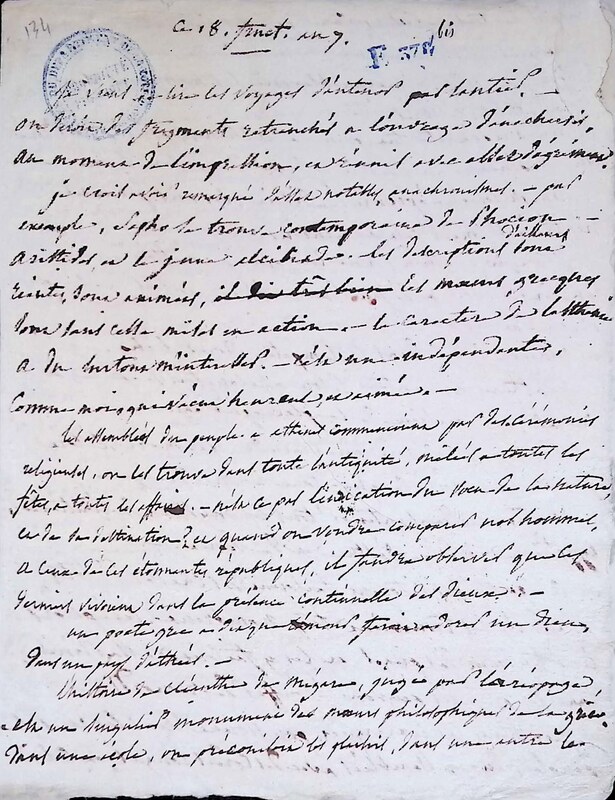 134
ce 18. fruct. an 7.
E 378 bis
je viens de lire les voyages d'antenor par lantier. -
on dirait des fragments retranchés a l'ouvrage d'anacharsis,
au moment de l'impression, et réunis avec assez d'agrément.
je crois avoir remarqué d'assez notables anachronismes. - par
exemple, Sapho se trouve contemporaine de Phocion -
aristides, et le jeune alcibiade. les descriptions sont d'ailleurs
riantes, sont animées, il dit très bien les mœurs grecques
sont sans cesse mises en action. - le caractère de lasthenie
a du surtout m'intéresser. - c'est une indépendante,
comme moi, qui vécut heureuse, et aimée. -
les assemblées du peuple a athenes commencaient par des cérémonies
religieuses, on les trouve dans toute l'antiquité, mêlées a toutes les
fêtes, a toutes les affaires. - n'est ce pas l'indication du vœu de la nature
et de sa destination ? et quand on voudra comparer nos hommes,
a ceux de ces étonnantes republiques, il faudra observer que ces
derniers vivoient dans la présence continuelle des dieux. -
un poete grec a dit que feroit adorer un dieu,
dans un pays d'athées. -
l'histoire de Cléanthe de mégare, jugé par l'aréopage,
est un singulier monument des mœurs philosophiques de la grèce.
dans une école, on préconisoit les plaisirs, dans une autre le